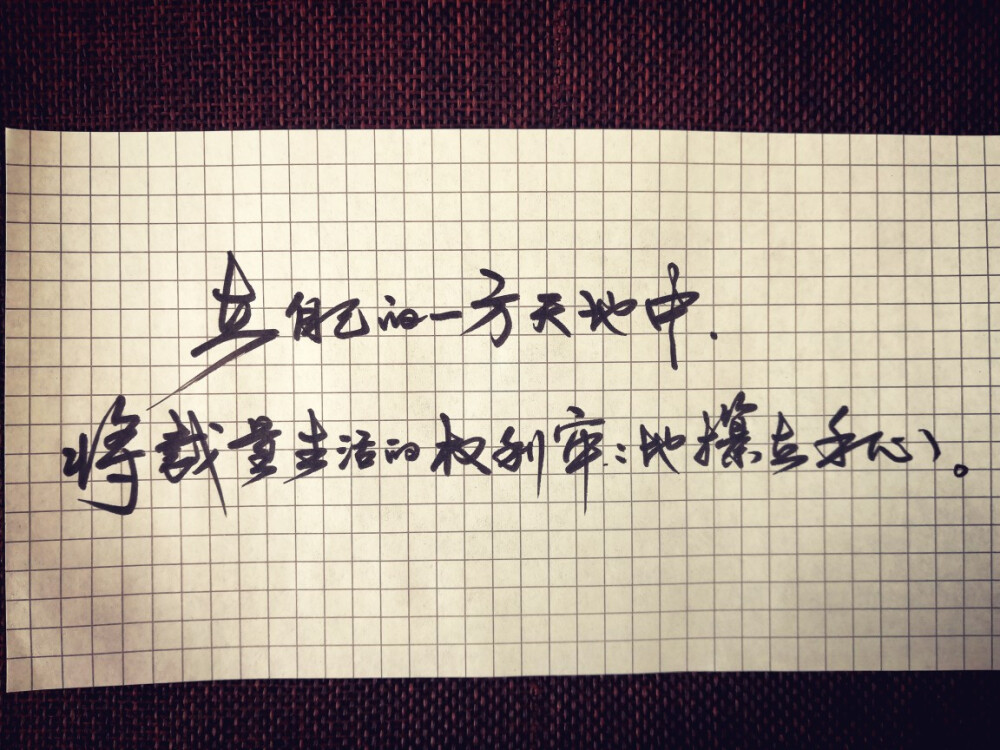 在自己的一方天地中.
将裁量生活的权利牢:地攥在手心。